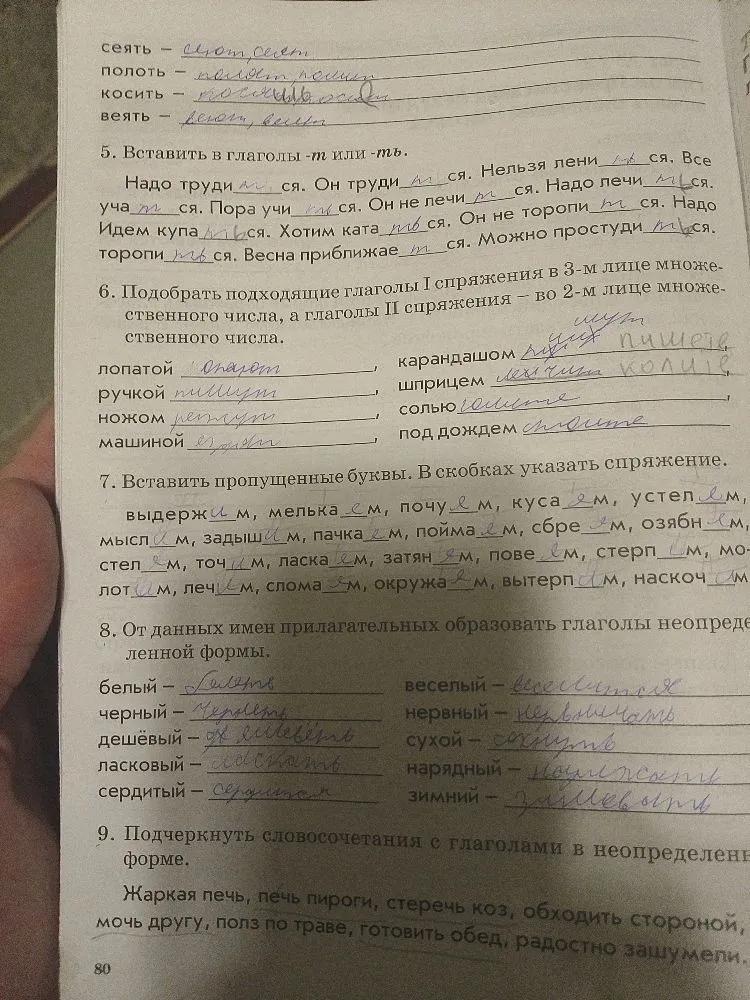 сеять – сеют, сеят
полоть –
косить –
веять – веют,
5. Вставить в глаголы -т или -ть.
Надо труди т ся. Он труди т ся. Нельзя лени ть ся. Все
уча т ся. Пора учи ть ся. Он не лечи т ся. Надо лечи ть ся.
Идем купа ть ся. Хотим ката ть ся. Он не торопи т ся. Надо
торопи ть ся. Весна приближае т ся. Можно простуди ть ся.
6. Подобрать подходящие глаголы I спряжения в 3-м лице множе-
ственного числа, а глаголы II спряжения – во 2-м лице множе-
ственного числа.
лопатой копают, карандашом пишете,
ручкой пишут, шприцем колите
ножом режут, солью солите,
машиной, под дождем стоите
7. Вставить пропущенные буквы. В скобках указать спряжение.
выдерж и м, мелька е м, почу е м, куса е м, устел е м,
мысл и м, задыш и м, пачка е м, пойма е м, сбре е м, озябн е м,
стел е м, точ и м, ласка е м, затян е м, пове е м, стерп и м, мо-
лот и м, леч и м, слома е м, окружа е м, вытерп и м, наскоч и м
8. От данных имен прилагательных образовать глаголы неопреде
ленной формы.
белый – белеть веселый –
черный – чернеть нервный – нервничать
дешёвый – дешеветь сухой – сохнуть
ласковый – ласкать нарядный – наряжать
сердитый – зимний – зимовать
9. Подчеркнуть словосочетания с глаголами в неопределенн
форме.
Жаркая печь, печь пироги, стеречь коз, обходить стороной,
мочь другу, полз по траве, готовить обед, радостно зашумели.
80